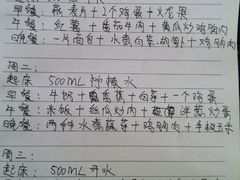 早餐：燕麦片+2个鸡蛋+火龙果
午餐：红薯+番茄牛肉+黄瓜炒鸡胸肉
晚餐：一片面包+水煮白菜、胡萝卜+鸡胸肉
周二：
起床 500ML 柠檬水
早餐：牛奶+香蕉+白菜+一个鸡蛋
午餐：米饭+丝瓜炒肉+洋葱炒蛋
晚餐：两种水煮蔬菜+鸡胸肉+半根玉米
周三：
起床 500ML 开水